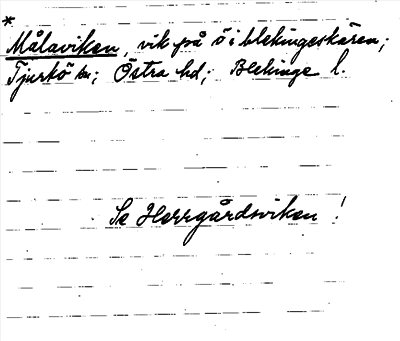 *
Målaviken, vik på ö i blekingeskären;
Tjurkö kn; Östra hd; Blekinge l.
Se Herrgårdsviken!